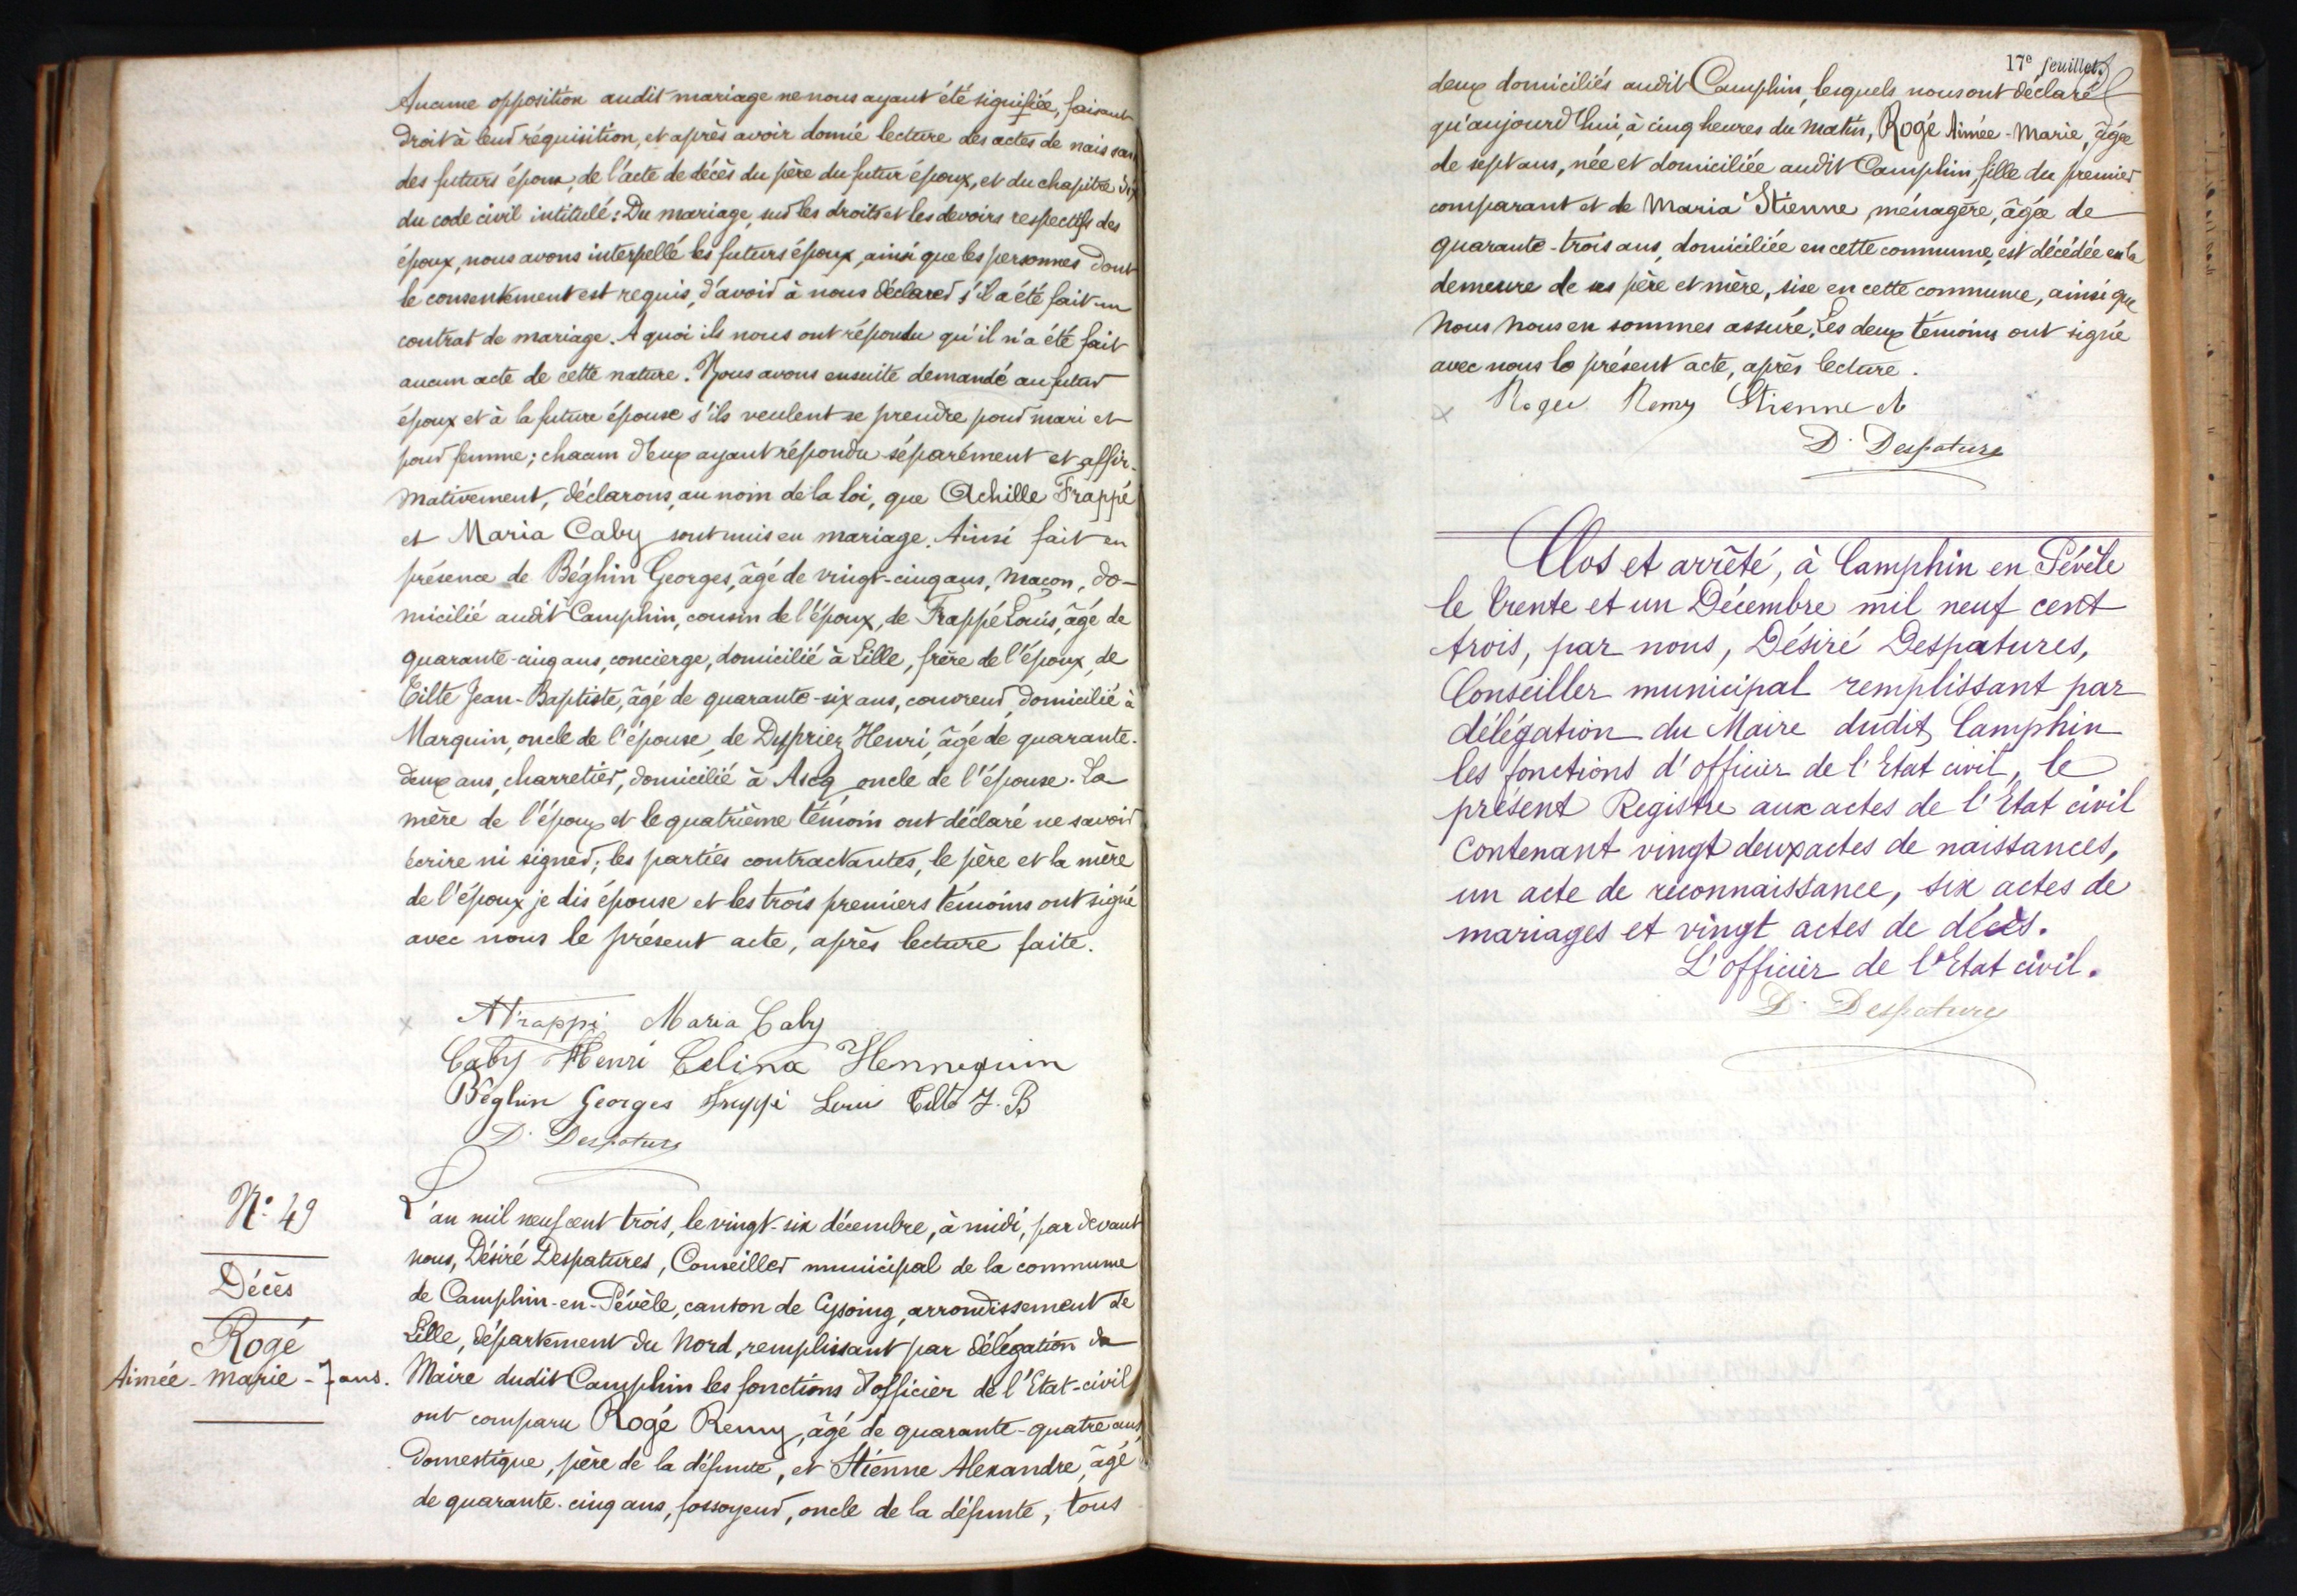 Aucune opposition audit mariage ne nous ayant été signifiée, faisant
droit à leur réquisition, et après avoir donné lecture des actes de naissan
des futurs époux, de l'acte de décès du père du futur époux, et du chapitre six
du code civil intitulé: Du mariage, sur les droits et les devoirs respectifs des
époux, nous avons interpellé les futurs époux, ainsi que les personnes dont
le consentement est requis, d'avoir à nous déclarer s'il a été fait un
contrat de mariage. A quoi ils nous ont répondu qu'il n'a été fait
aucun acte de cette nature. Nous avons ensuite demandé au futur
époux et à la future épouse s'ils veulent se prendre pour mari et
pour femme; chacun d'eux ayant répondu séparément et affir-
mativement, déclarons, au nom de la loi, que Achille Frappé
et Maria Caby sont unis en mariage. Ainsi fait en
présence de Béghin Georges, âgé de vingt-cinq ans, maçon, do-
micilié audit Camphin, cousin de l'époux, de Frappé Louis, âgé de
quarante-cinq ans, concierge, domicilié à Lille, frère de l'époux, de
Tilte Jean-Baptiste, âgé de quarante-six ans, couvreur, domicilié à
Marquin, oncle de l'épouse, de Dypriez Henri, âgé de quarante-
deux ans, charretier, domicilié à Ascq, oncle de l'épouse. La
mère de l'époux et le quatrième témoin ont déclaré ne savoir
écrire ni signer; les parties contractantes, le père et la mère
de l'époux je dis épouse et les trois premiers témoins ont signé
avec nous le présent acte, après lecture faite.
A Frappé Maria Caby
Caby Henri Celina Hennequin
Béghin Georges Frappé Louis Tilte J. B
D. Despatures
N° 49
Décès
Rogé
Aimée-Marie-7 ans.
L'an mil neuf cent trois, le vingt-six décembre, à midi, par devant
nous, Désiré Despatures, Conseiller municipal de la commune
de Camphin-en-Pévèle, canton de Cysoing, arrondissement de
Lille, département du Nord, remplissant par délégation du
Maire dudit Camphin les fonctions d'officier de l'Etat-civil,
ont comparu Rogé Remy, âgé de quarante-quatre ans,
domestique, père de la défunte, et Stienne Alexandre, âgé
de quarante-cinq ans, fossoyeur, oncle de la défunte, tous
17e feuillet.
deux domiciliés audit Camphin, lesquels nous ont déclaré
qu'aujourd'hui, à cinq heures du matin, Rogé Aimée-Marie, âgée
de sept ans, née et domiciliée audit Camphin, fille du premier
comparant et de Maria Stienne, ménagère, âgée de
quarante-trois ans, domiciliée en cette commune, est décédée en la
demeure de ses père et mère, sise en cette commune, ainsi que
nous nous en sommes assuré. Les deux témoins ont signé
avec nous le présent acte, après lecture.
Roger Remy Stienne A
D. Despatures
Clos et arrêté, à Camphin en Pévèle
le trente et un Décembre mil neuf cent
trois, par nous, Désiré Despatures,
Conseiller municipal remplissant par
délégation du Maire dudit Camphin
les fonctions d'officier de l'Etat civil, le
présent Registre aux actes de l'Etat civil
contenant vingt deux actes de naissances,
un acte de reconnaissance, six actes de
mariages et vingt actes de décès.
L'officier de l'Etat civil.
D. Despatures